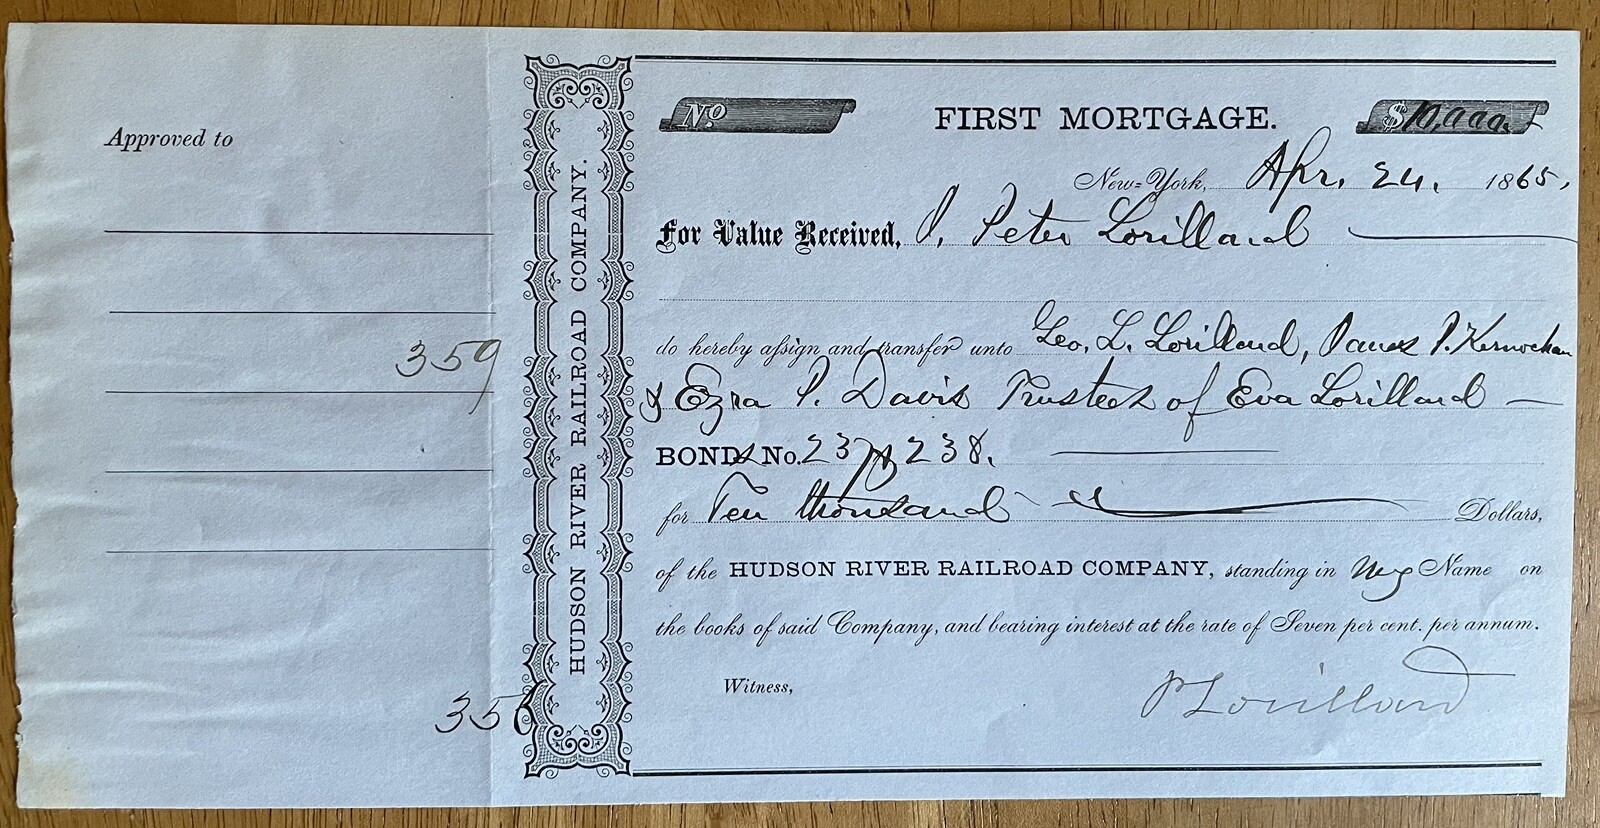 Approved to
359
356
HUDSON RIVER RAILROAD COMPANY.
No.
FIRST MORTGAGE.
$10,000.
New-York, Apr. 24. 1865,
For Value Received, I, Peter Lorillard
do hereby assign and transfer unto Geo. L. Lorillard, James P. Kernochan
& Ezra P. Davis Trustees of Eva Lorillard
BONDs No. 237 & 238.
for Ten thousand Dollars,
of the HUDSON RIVER RAILROAD COMPANY, standing in my Name on
the books of said Company, and bearing interest at the rate of Seven per cent. per annum.
Witness,
P Lorillard